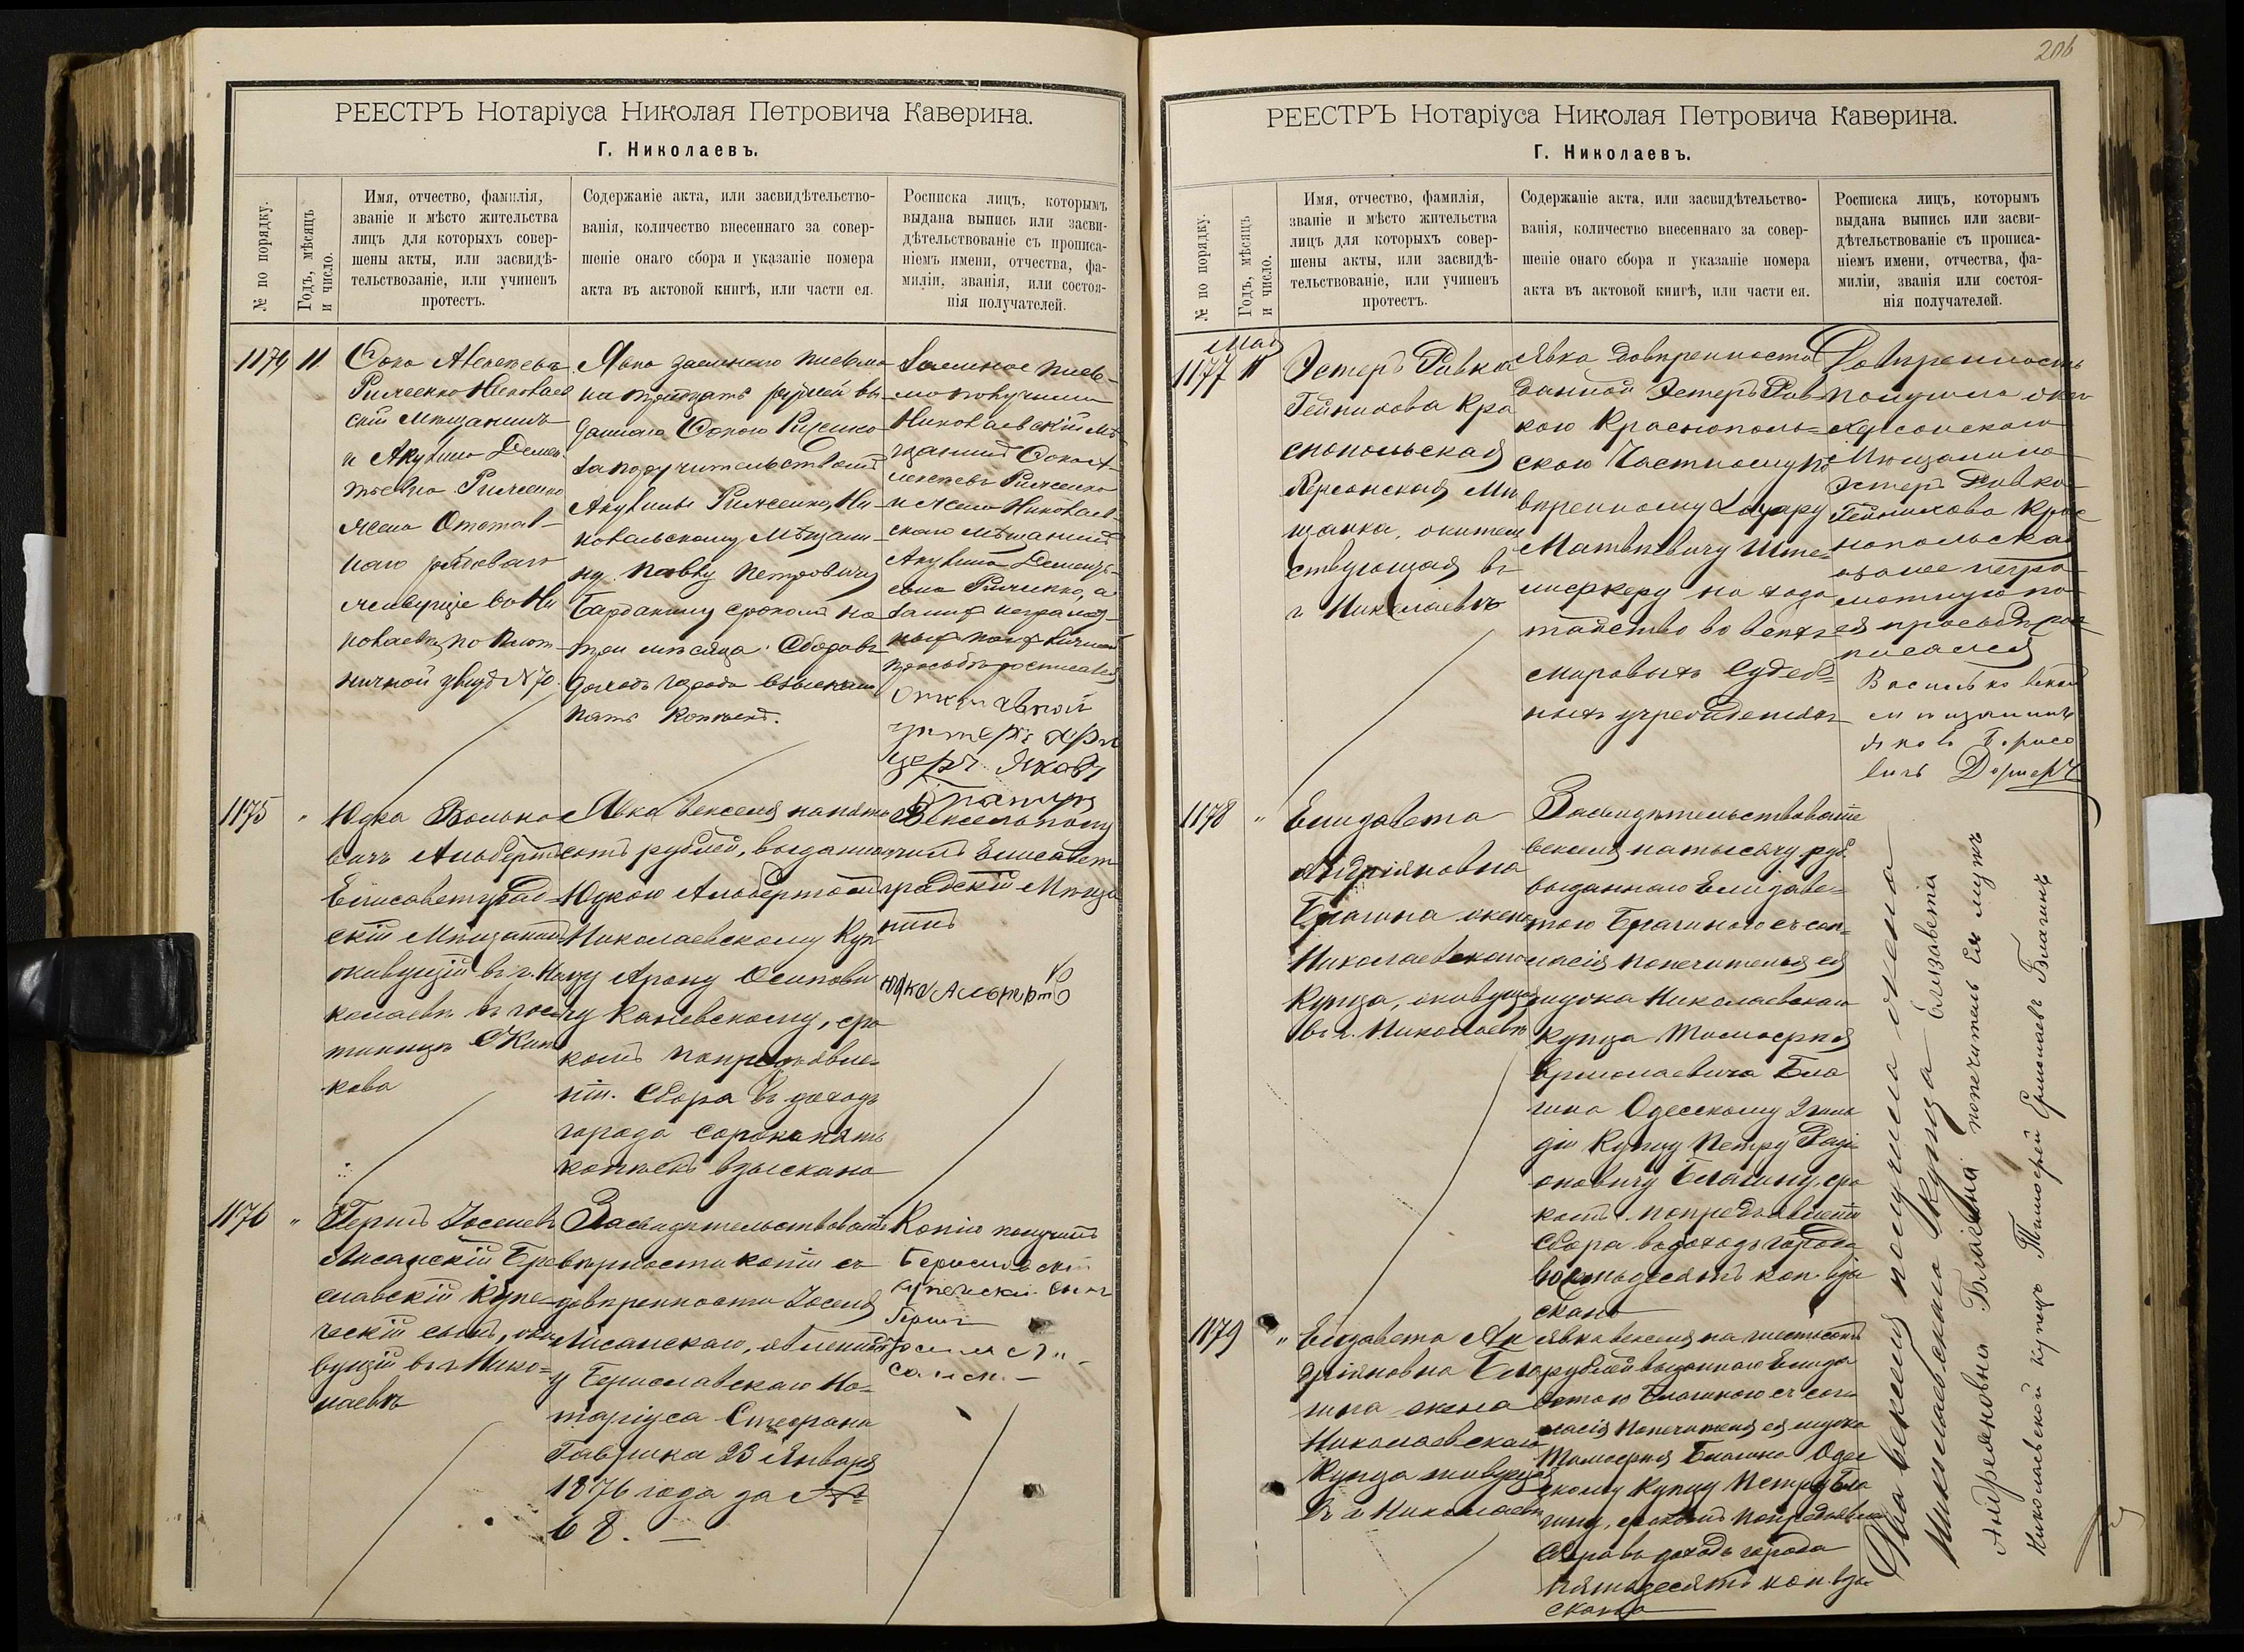 РЕЕСТРЪ Нотаріуса Николая Петровича Каверина.
Г. Николаевъ.
№ по порядку.
Годъ, мѣсяцъ
и число.
Имя, отчество, фамилія,
званіе и мѣсто жительства
лицъ для которыхъ совер-
шены акты, или засвидѣ-
тельствованіе, или учиненъ
протестъ.
Содержаніе акта, или засвидѣтельство-
ванія, количество внесеннаго за совер-
шеніе онаго сбора и указаніе номера
акта въ актовой книгѣ, или части ея.
Росписка лицъ, которымъ
выдана выпись или засви-
дѣтельствованіе съ прописа-
ніемъ имени, отчества, фа-
миліи, званія, или состоя-
нія получателей.
1174
11
Николаев
скій Мѣщанинъ
и Акулина Демен-
тьевна
жена Отстав-
наго рядоваго
живущіе въ Ни
колаевѣ, по Плот
ничной улицѣ № 70.
Явка заемнаго письма
на тридцать рублей вы-
даннаго
за поручительствомъ
Акулины Ни-
колаевскому Мѣщани-
ну Павлу Петровичу
срокомъ на
три мѣсяца. Сборовъ
доходъ города взыскано
пять копѣекъ.
Заемное пись-
мо получили
Николаевскій мѣ-
щанинъ
и жена Николаев-
скаго мѣщанина
Акулина Демен-
тьевна а
за нихъ неграмот-
ныхъ по ихъ личной
просьбѣ росписался
Яковъ
1175
"
Юдка Волько
вичъ Альбертъ
Елисаветград-
скій Мѣщанинъ
живущій въ г. Ни
колаевѣ въ гос
тинницѣ
кова
Явка векселя на пять
сотъ рублей, выданнаго
Юдкою Альбертомъ
Николаевскому Куп
цу Арону Осипови
чу Каневскому, сро
комъ по предъявле-
ніи. Сбора въ доходъ
города сорокъ пять
копѣекъ взыскано
Вексель полу
чилъ Елисавет
градскій Мѣща
нинъ
Юдка Альбертъ
1176
"
Гершъ Іоселевъ
Лисанскій Бери
славскій Купе-
ческій сынъ, жи
вущій въ г. Нико-
лаевѣ
Засвидѣтельствованіе
вѣрности копіи съ
довѣренности Іоселя
Лисанскаго, явленной
у Бериславскаго Но-
таріуса Стефана
Гаврика 23 Января
1876 года за №
68. —
Копію получилъ
Бериславскій
купеческій сынъ
Гершъ
206
РЕЕСТРЪ Нотаріуса Николая Петровича Каверина.
Г. Николаевъ.
№ по порядку.
Годъ, мѣсяцъ
и число.
Имя, отчество, фамилія,
званіе и мѣсто жительства
лицъ для которыхъ совер-
шены акты, или засвидѣ-
тельствованіе, или учиненъ
протестъ.
Содержаніе акта, или засвидѣтельство-
ванія, количество внесеннаго за совер-
шеніе онаго сбора и указаніе номера
акта въ актовой книгѣ, или части ея.
Росписка лицъ, которымъ
выдана выпись или засви-
дѣтельствованіе съ прописа-
ніемъ имени, отчества, фа-
миліи, званія или состоя-
нія получателей.
Мая
1177
11
Эстеръ Ривка
Гейнихова Кра
снопольская
Херсонская Мѣ
щанка, жител
ствующая въ
г. Николаевѣ
Явка довѣренности
данной Эстеръ Рив-
кою Краснополь-
скою Частному По
вѣренному Лазару
Матвѣевичу
на хода
тайство во всѣхъ
мировыхъ судеб-
ныхъ учрежденіяхъ
Довѣренность
получила жена
Херсонскаго
Мѣщанина
Эстеръ Ривка
Гейнихова Крас
нопольская
а за нее негра
мотную по
ея просьбѣ рос
писался
Васильковскій
мѣщанинъ
Яковъ Борисо
вичъ
1178
"
Елизавета
Андріяновна
Благина жена
Николаевскаго
Купца, живущая
въ г. Николаевѣ
Засвидѣтельствованіе
векселя на тысячу руб.
выданнаго Елизаве-
тою Благиною съ сог-
ласія попечителя ея
мужа Николаевскаго
Купца Тимофея
Ермолаевича Бла
гина Одесскому 2 гиль
діи Купцу Петру Роді
оновичу Благину, сро
комъ по предъявленіи
Сбора въ доходъ города
восемьдесятъ коп. взы
скано
1179
"
Елизавета Ан
дріяновна Бла
гина жена
Николаевскаго
Купца живущая
въ г. Николаевѣ
Явка векселя на шестьсотъ
рублей выданнаго Елиза
ветою Благиною съ сог
ласія Попечителя ея мужа
Тимофея Благина Одес
скому Купцу Петру Бла
гину, срокомъ по предъявленіи
Сбора въ доходъ города
пятьдесятъ коп. взы-
скано
Два векселя получила жена
Николаевскаго Купца Елизавета
Андреяновна Благина попечитель Ея мужъ
Николаевской купецъ Тимофей Ермолаевъ Благинъ